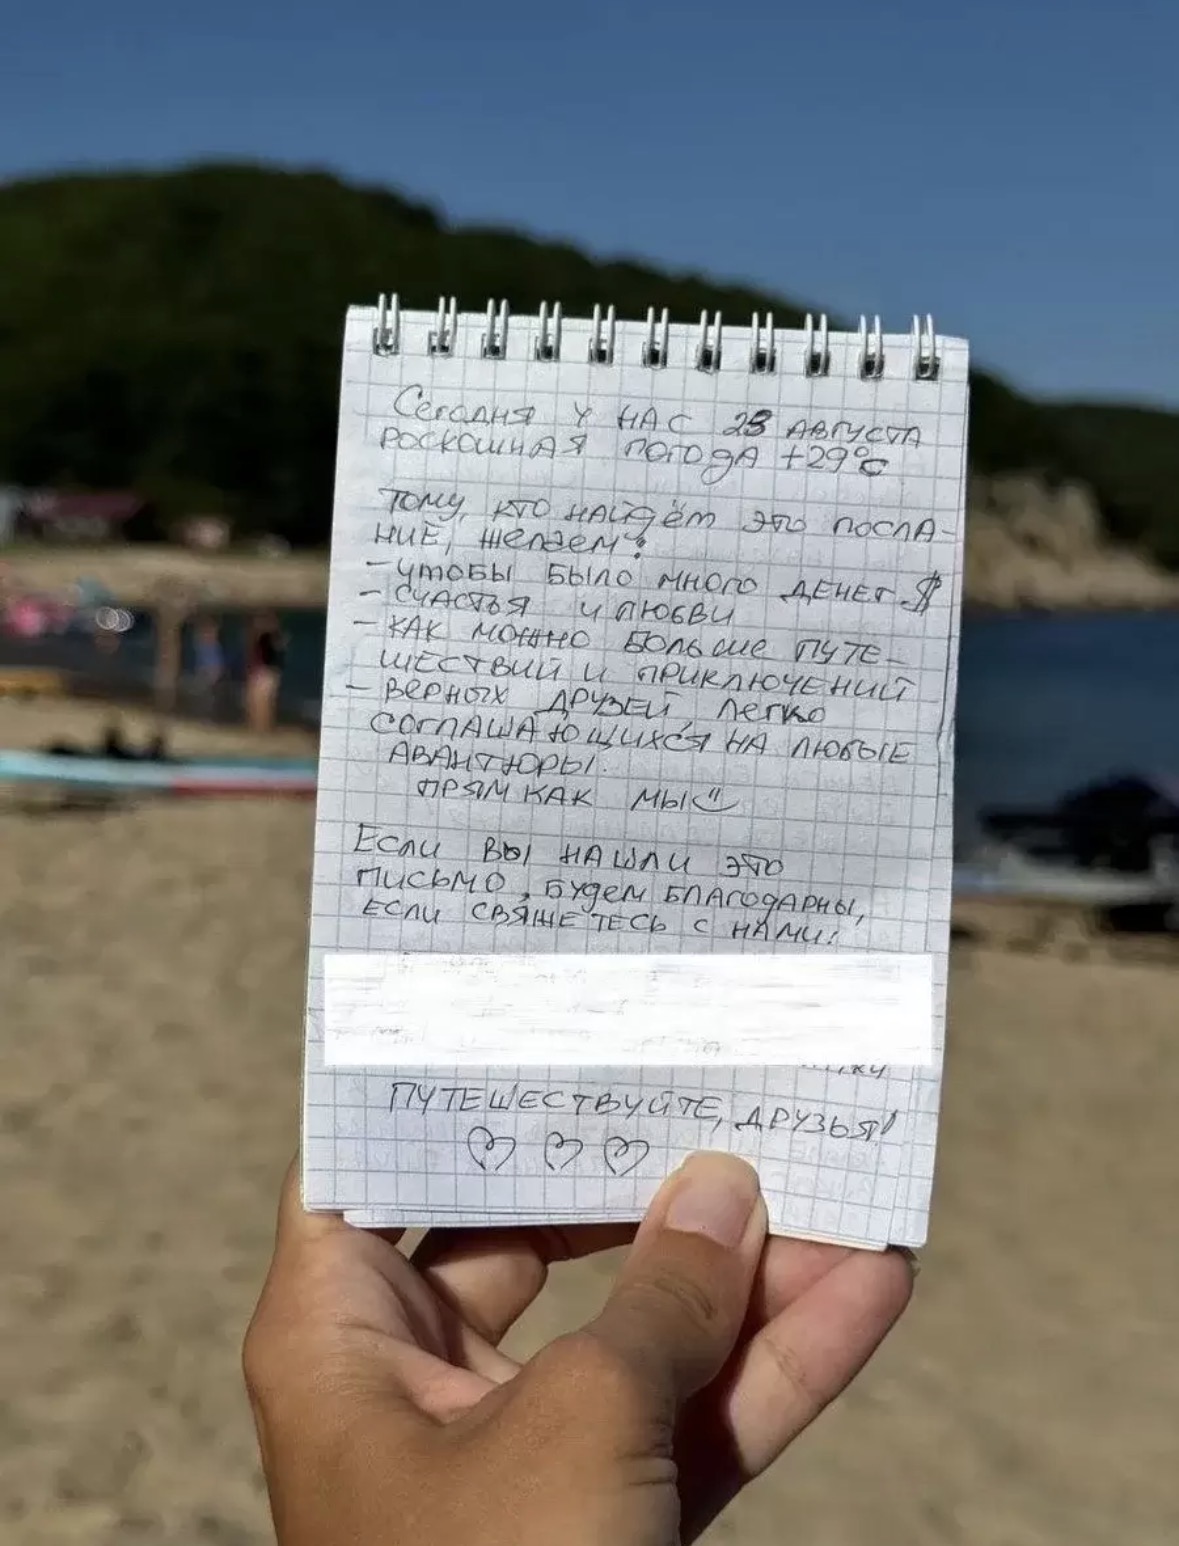 Сегодня у нас 28 августа
роскошная погода +29°С
Тому, кто найдём это посла-
ние, желаем:
- чтобы было много денег $
- счастья и любви
- как можно больше путе-
шествий и приключений
- верных друзей, легко
соглашающихся на любые
авантюры.
прям как мы
Если вы нашли это
письмо, будем благодарны,
если свяжетесь с нами:
Путешествуйте, друзья!